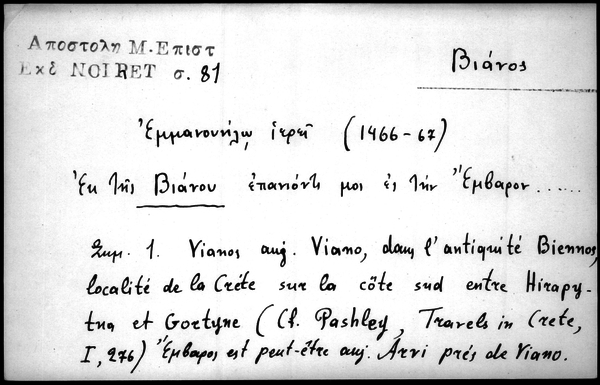 Αποστολη Μ. Επιστ
Εκδ NOIRET σ. 81
Βιάνος
Ἐμμανουήλῳ ἱερεῖ (1466-67)
Ἐκ τῆς Βιάνου ἐπανιόντι μοι ἐς τὴν Ἔμβαρον......
Σημ. 1. Vianos auj. Viano, dans l'antiquité Biennos,
localité de la Crète sur la côte sud entre Hirapy-
tna et Gortyne (Cf. Pashley, Travels in Crete,
I, 276) Ἔμβαρος est peut-être auj. Arvi prés de Viano.